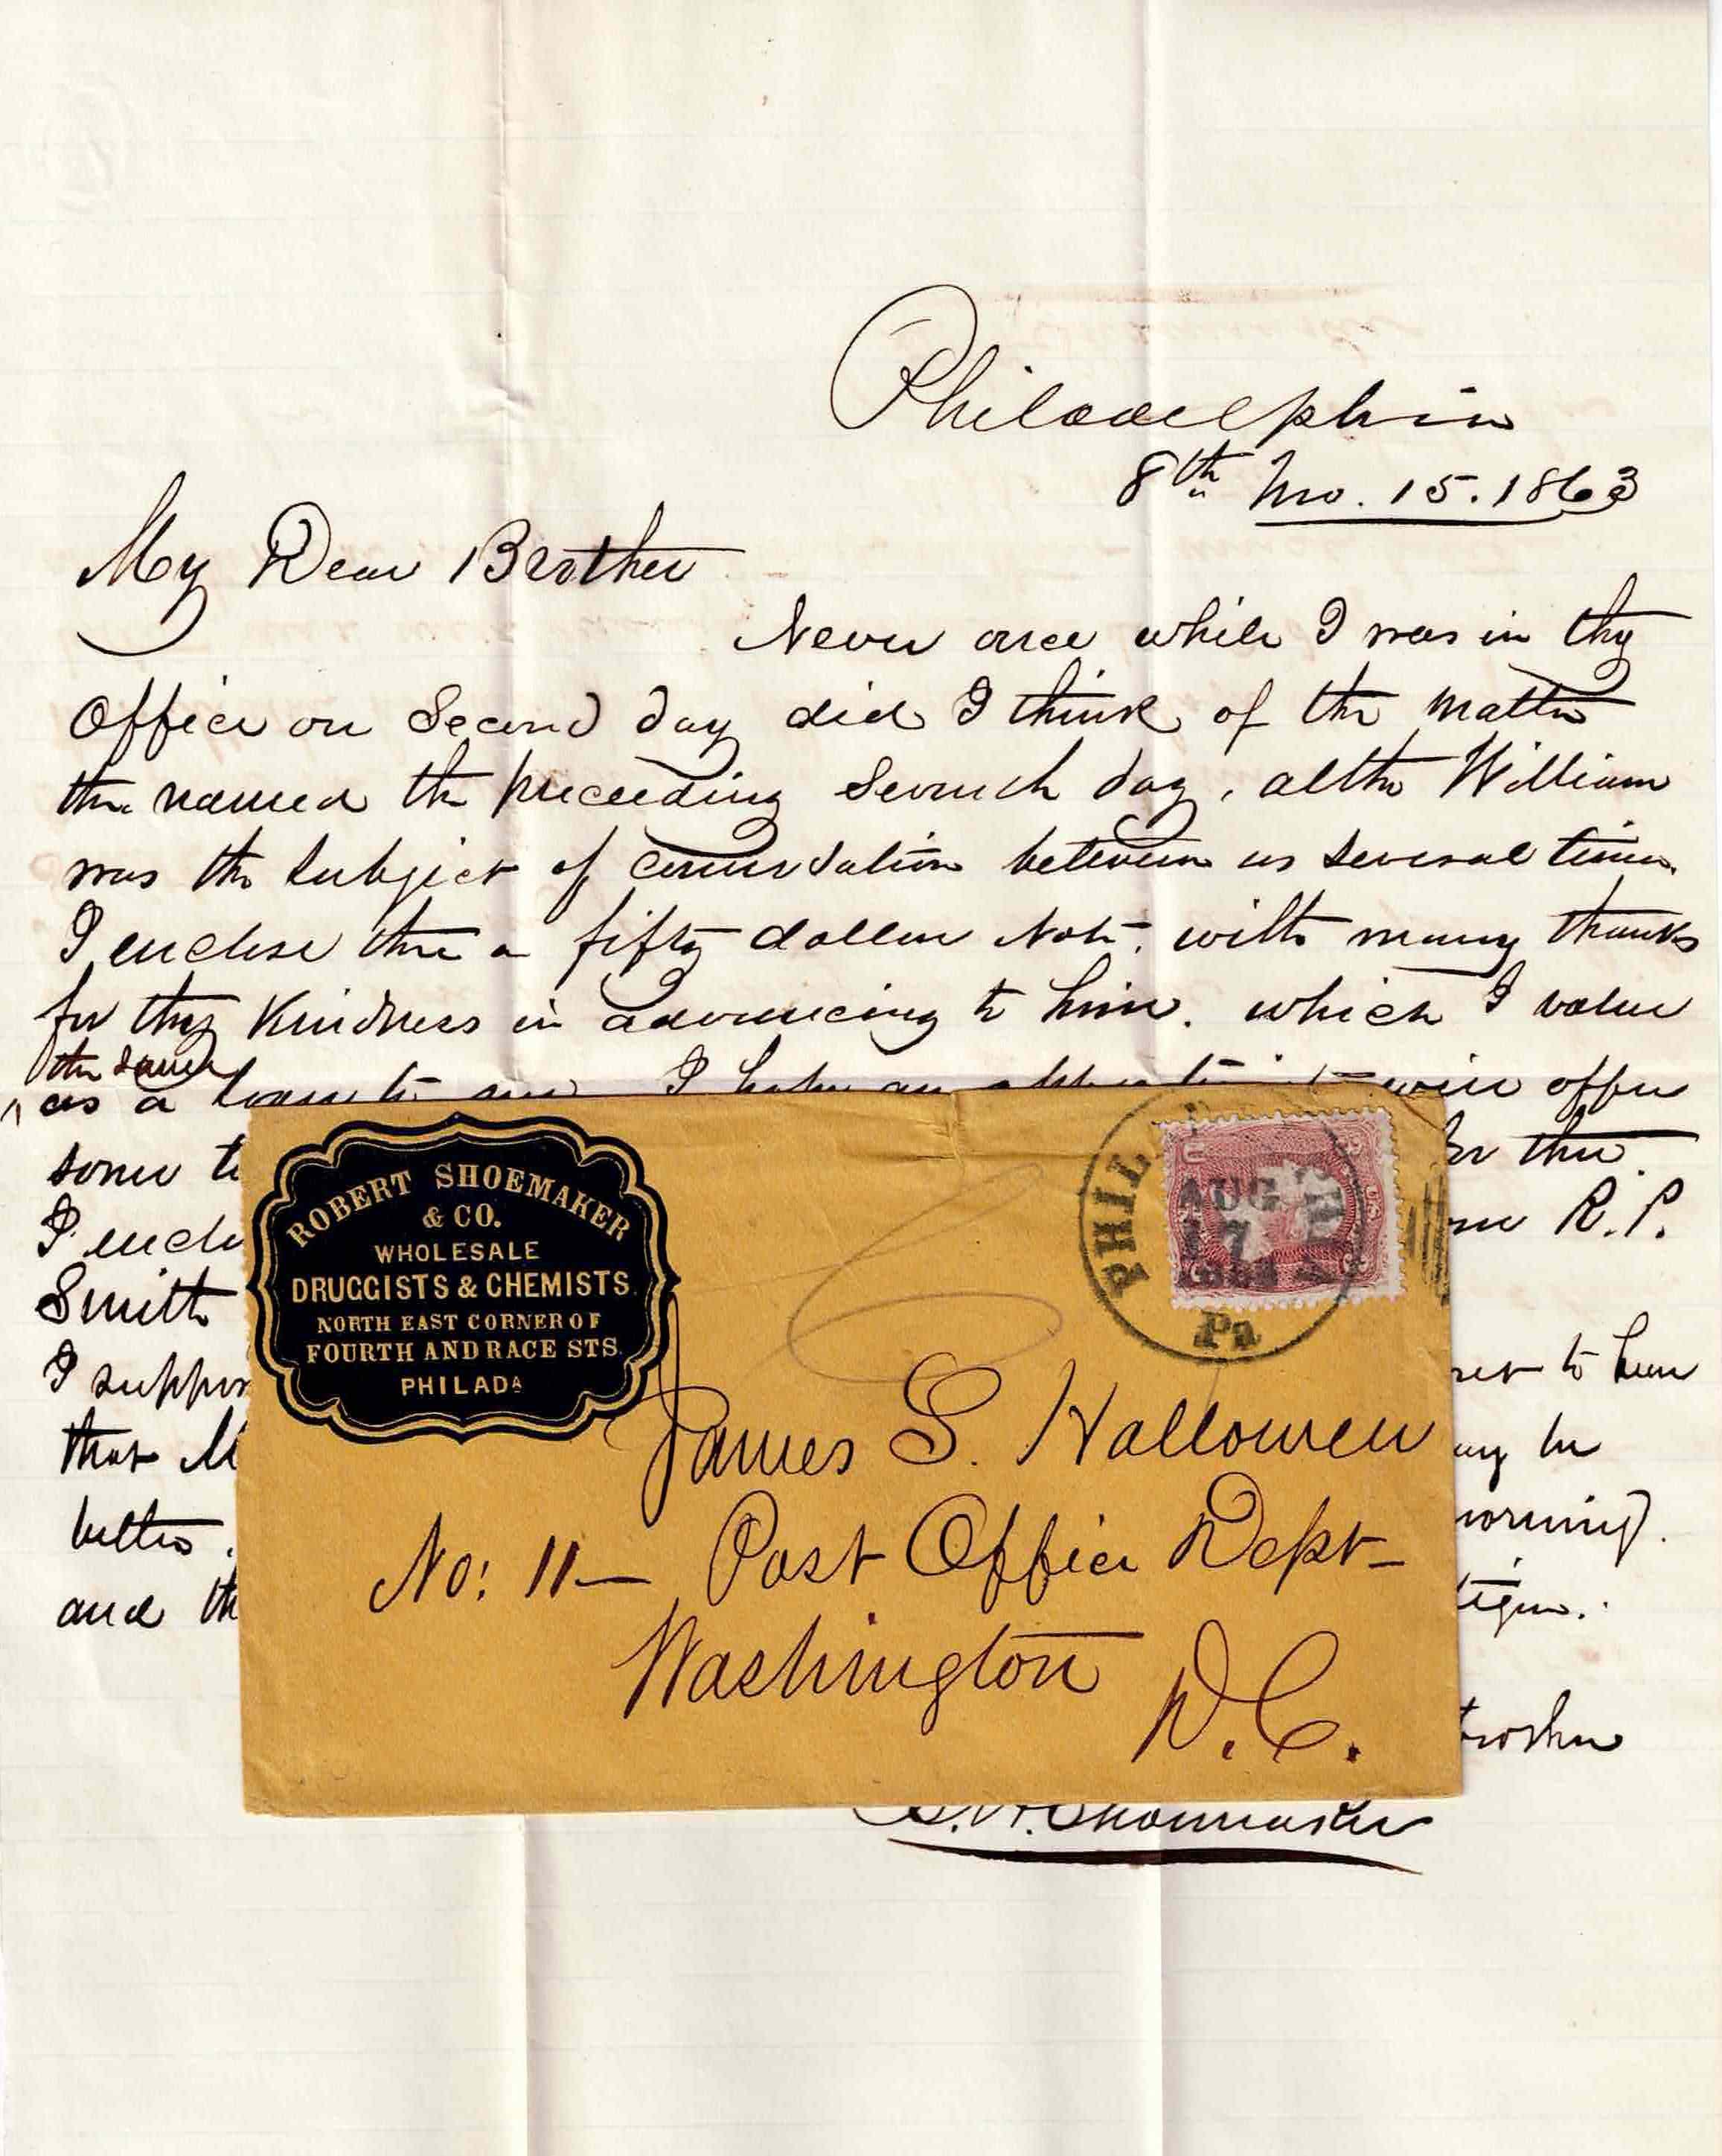 Philadelphia
8th Mo. 15. 1863
My Dear Brother
Never once while I was in thy
Office on Second day did I think of the matter
thee named the preceeding Seventh day, altho William
was the subject of conversation between us several times.
I enclose thee a fifty dollar Note, with many thanks
for thy Kindness in advancing to him. which I value
the same
as a loan to me I hope an will offer
some thee.
I R.P.
Smith
I to hear
that be
better.
and
ROBERT SHOEMAKER
& CO.
WHOLESALE
DRUGGISTS & CHEMISTS.
NORTH EAST CORNER OF
FOURTH AND RACE STS.
PHILADA
PHIL
AUG
17
Pa
James S. Hallowell
No: 11— Post Office Dept—
Washington
D.C.
Shoemaker